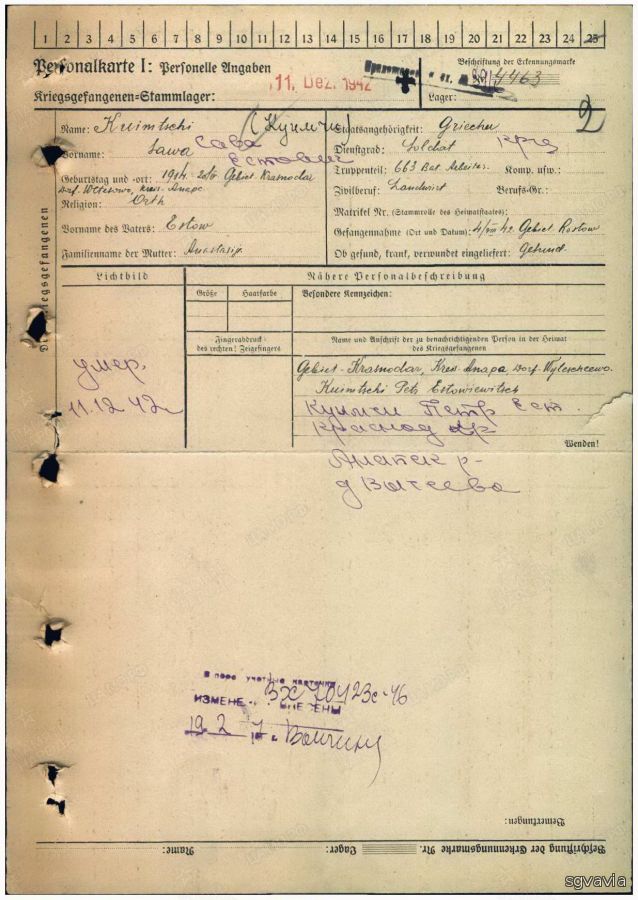 1 2 3 4 5 6 7 8 9 10 11 12 13 14 15 16 17 18 19 20 21 22 23 24 25
Personalkarte I: Personelle Angaben
11. Dez. 1942
Beschriftung der Erkennungsmarke
Nr. 4463
Kriegsgefangenen-Stammlager:
Lager:
2
Des Kriegsgefangenen
Name: Kuimtschi (Куимчи)
Сава
Vorname: Sawa
Естович
Geburtstag und -ort: 1914 Gebiet Krasnodar
Religion: Orth
Vorname des Vaters: Estow
Familienname der Mutter: Anastasia
Staatsangehörigkeit: Grieche
Dienstgrad: Soldat
Truppenteil: 663 Bat. Komp. usw.:
Zivilberuf: Landwirt Berufs-Gr.:
Matrikel Nr. (Stammrolle des Heimatstaates):
Gefangennahme (Ort und Datum): 4/VIII 42. Gebiet Rostow
Ob gesund, krank, verwundet eingeliefert: Gesund
Lichtbild
умер.
11.12 42
Nähere Personalbeschreibung
Größe Haarfarbe Besondere Kennzeichen:
Fingerabdruck
des rechten! Zeigefingers
Name und Anschrift der zu benachrichtigenden Person in der Heimat
des Kriegsgefangenen
Gebiet-Krasnodar, Kreis-Anapa Dorf-
Kuimtschi Petr Estowiewitsch
Петр Ест.
Краснод кр
Wenden!
Анапск р-
д
учетные карточки
ВХ 70423с-46
ИЗМЕНЕ ВНЕСЕНЫ
Bemerkungen:
Beschriftung der Erkennungsmarke Nr. Lager: Name:
sgvavia